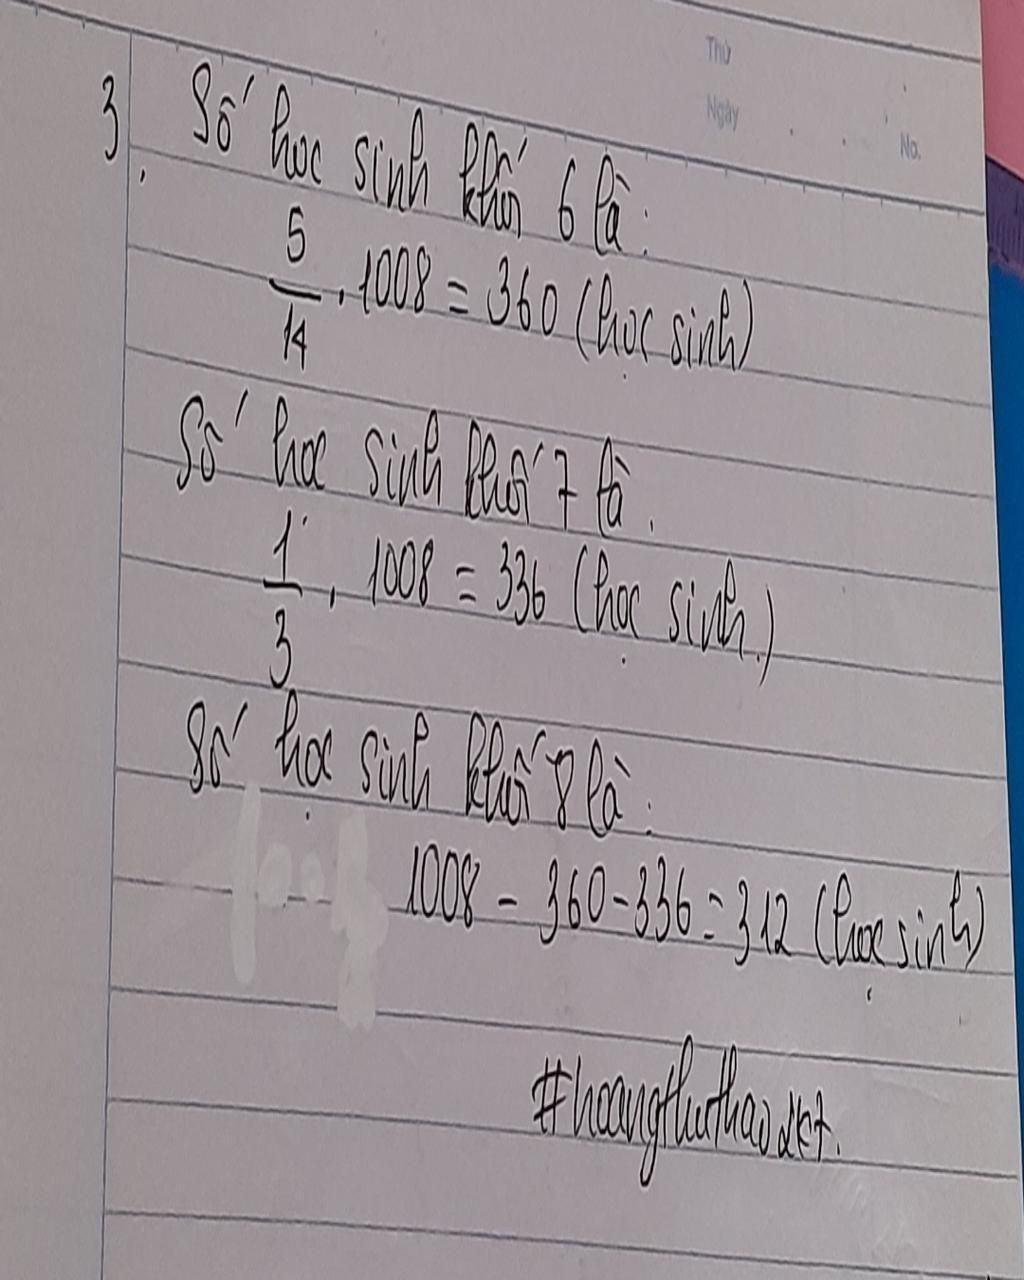 Thứ
Ngày
No.
3. Số học sinh khối 6 là:
5/14 . 1008 = 360 (học sinh)
Số học sinh khối 7 là.
1/3 . 1008 = 336 (học sinh.)
Số học sinh khối 8 là:
1008 - 360 - 336 = 312 (học sinh)